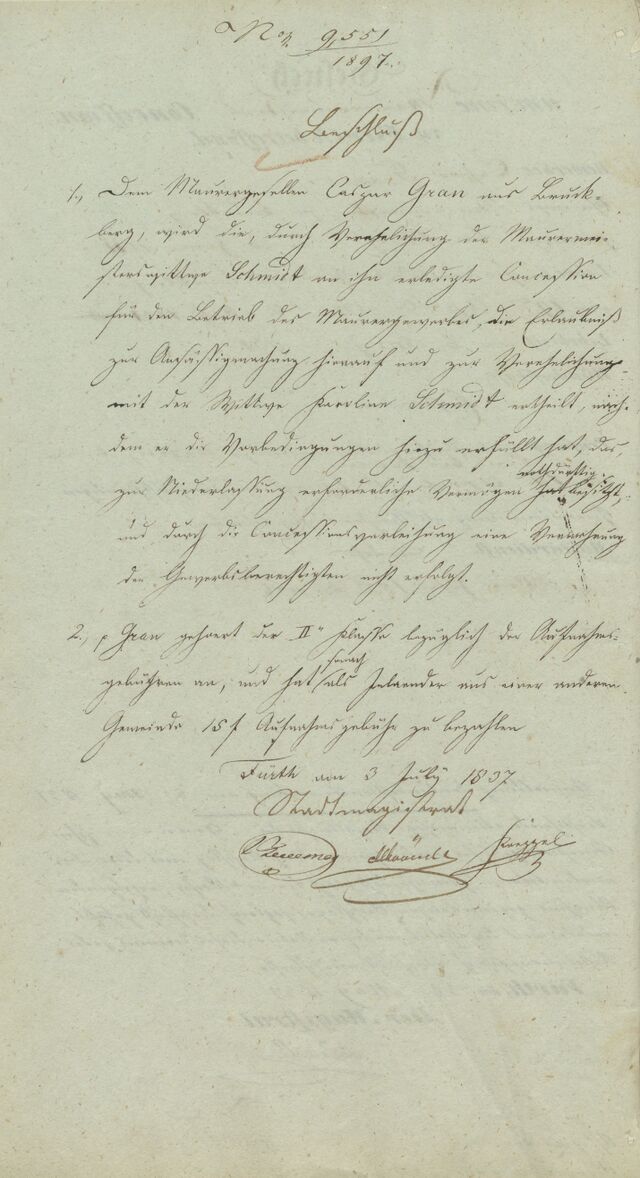 Nor. 9,551
1897.
Beschluß
1., Dem Maurergesellen Caspar Gran aus Bruck-
berg, wird die, durch Verehelichung der Maurermei-
sterswittwe Schmidt an ihn erledigte Concession
für den Betrieb des Maurergewerbes, die Erlaubniß
zur Ansässigmachung hierauf und zur Verehelichung
mit der Wittwe Karoline Schmidt ertheilt, nach-
dem er die Vorbedingungen hiezu erfüllt hat, das,
zur Niederlassung erforderliche Vermögen nothdürftig besitzt,
und durch die Concessionsverleihung eine Vermehrung
der Gewerbsberechtigten nicht erfolgt.
2., p Gran gehoert der IIn Klasse bezuglich der Aufnahms-
gebühren an, und hat sonach als Inlaender aus einer anderen
Gemeinde 15 f Aufnahmsgebühr zu bezahlen
Fürth am 3 July 1837
Stadtmagistrat
Koeppel